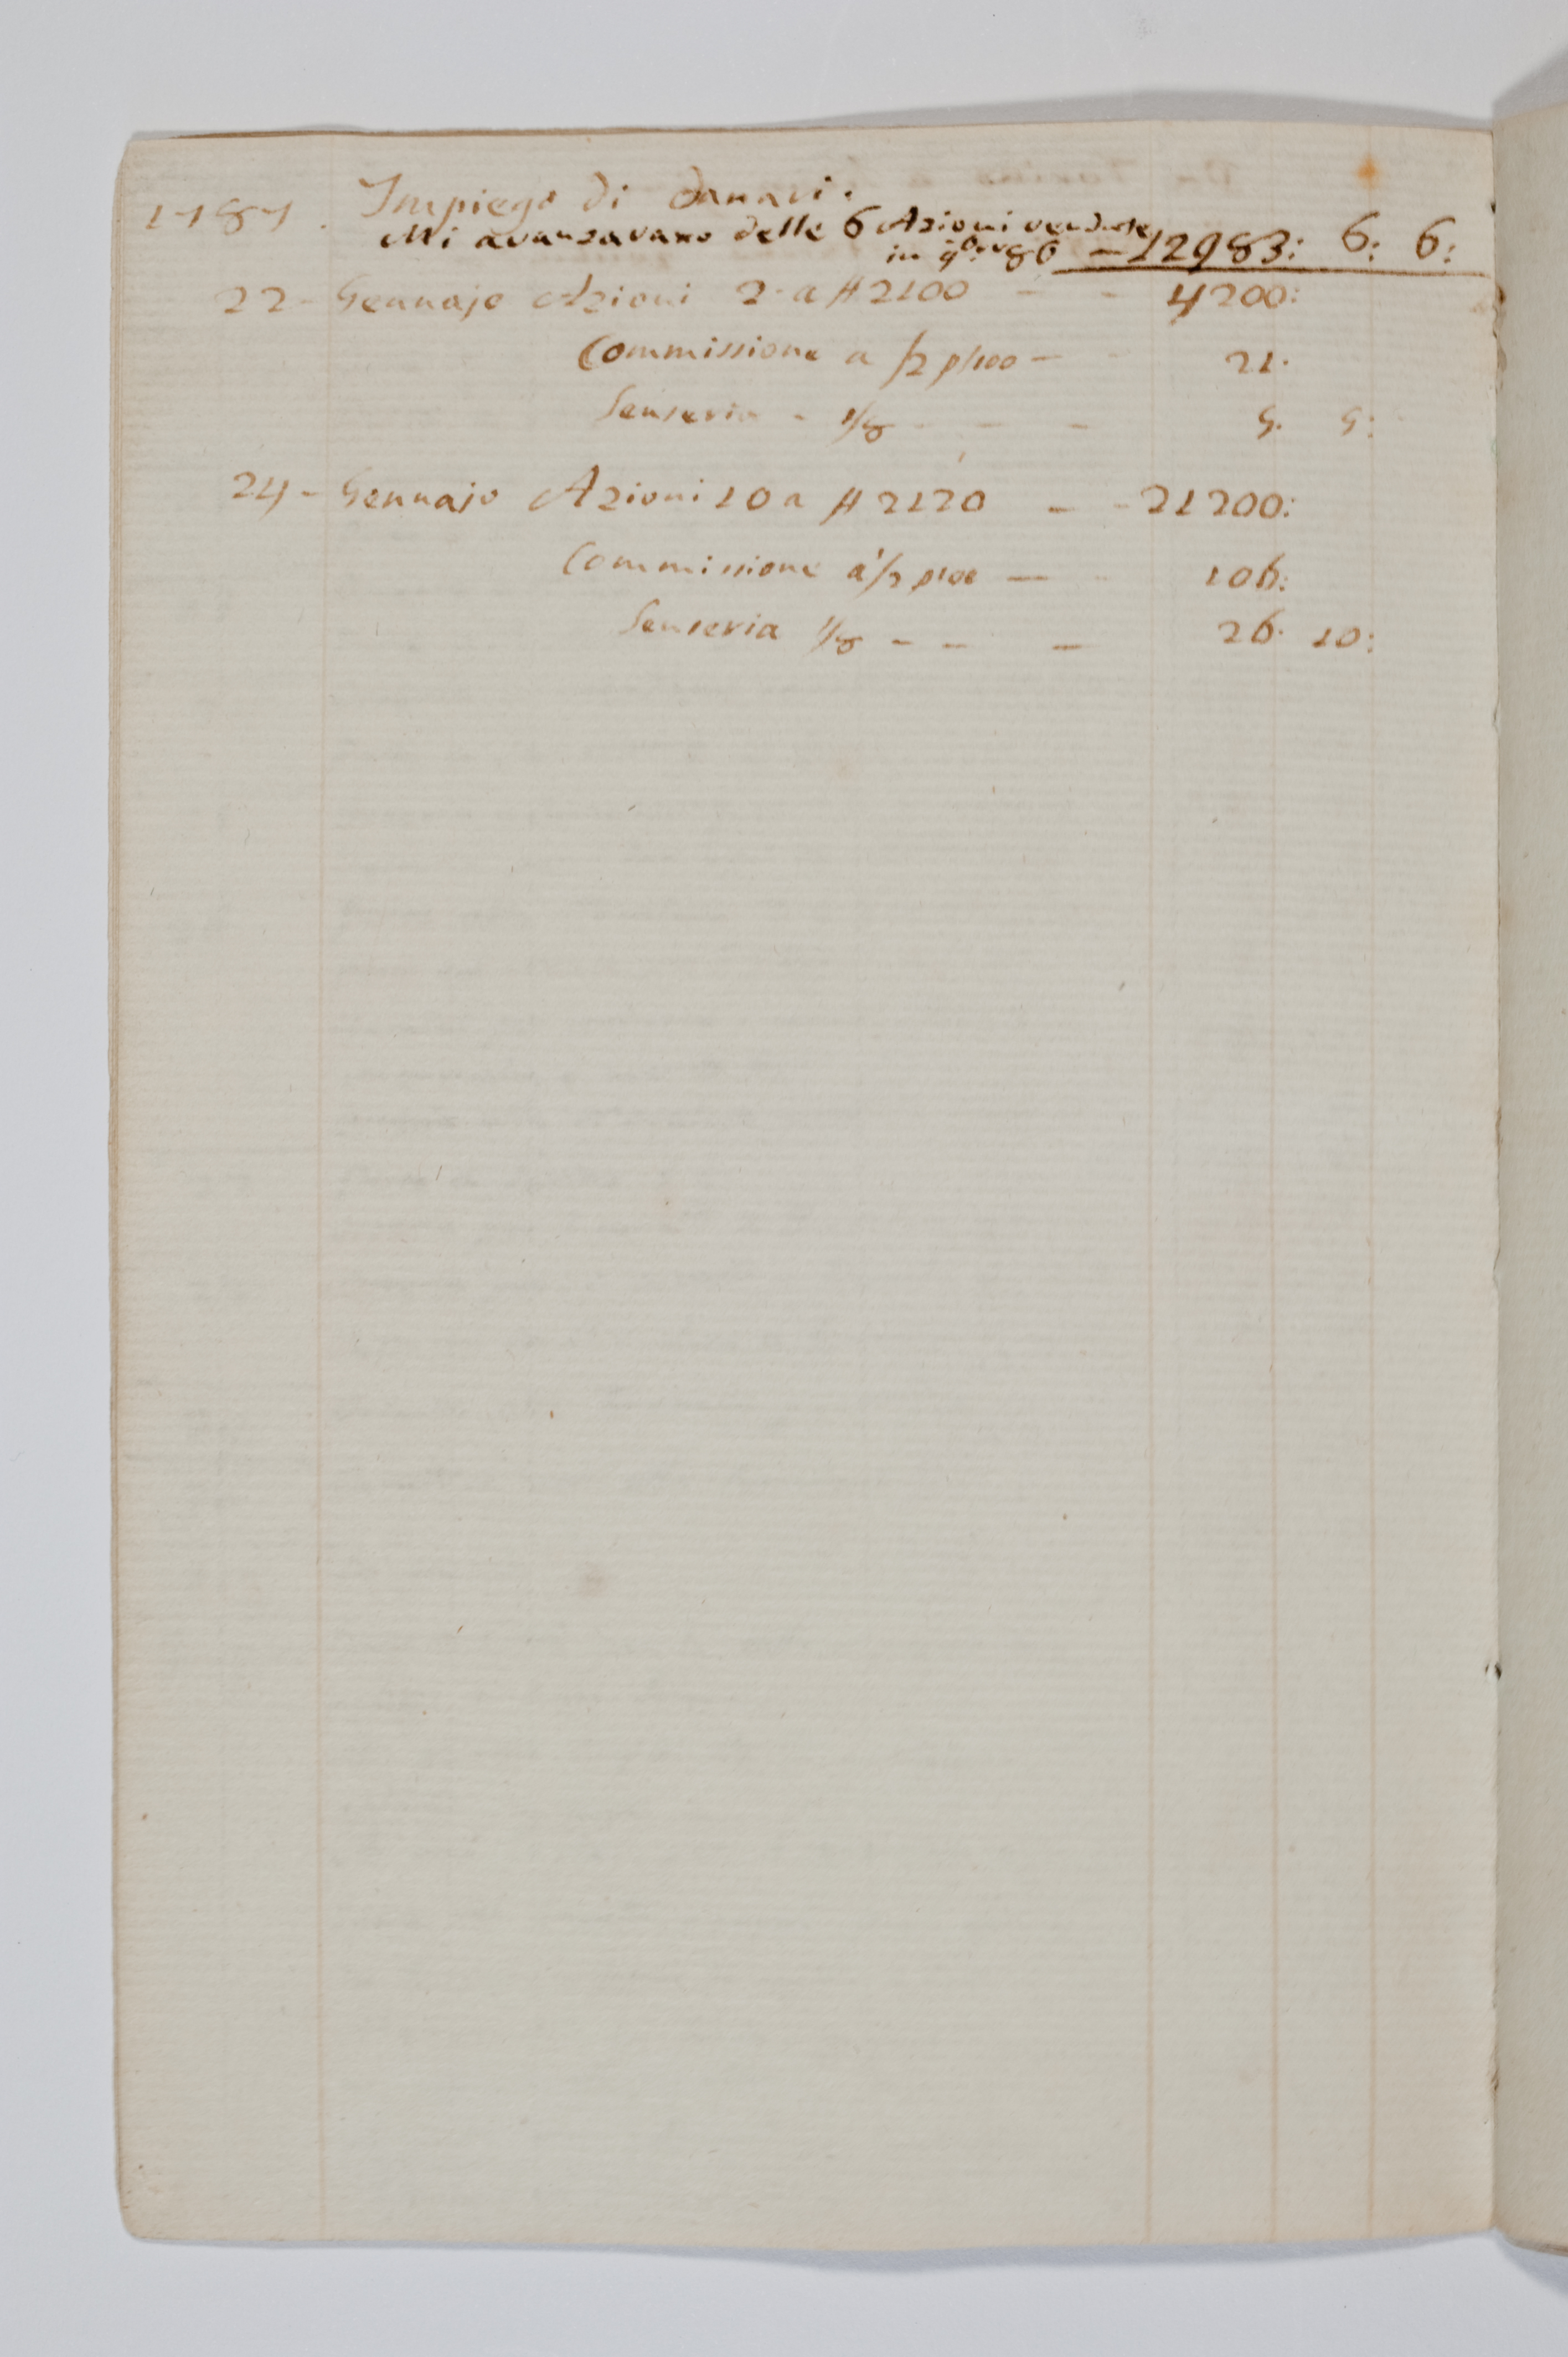 1787. Impiego di danari.
Mi avanzavano delle 6 Azioni vendute
in 9bre 86 — 12983: 6: 6:
22 - Gennajo Azioni 2 a # 2100 - - 4200:
Commissione a 1/2 p/100 - - 21.
Senseria - 1/8 - - - 5. 5:
24 - Gennajo Azioni 10 a # 2120 - - 21200:
Commissione a 1/2 p100 — - 106:
Senseria 1/8 - - - 26. 10: